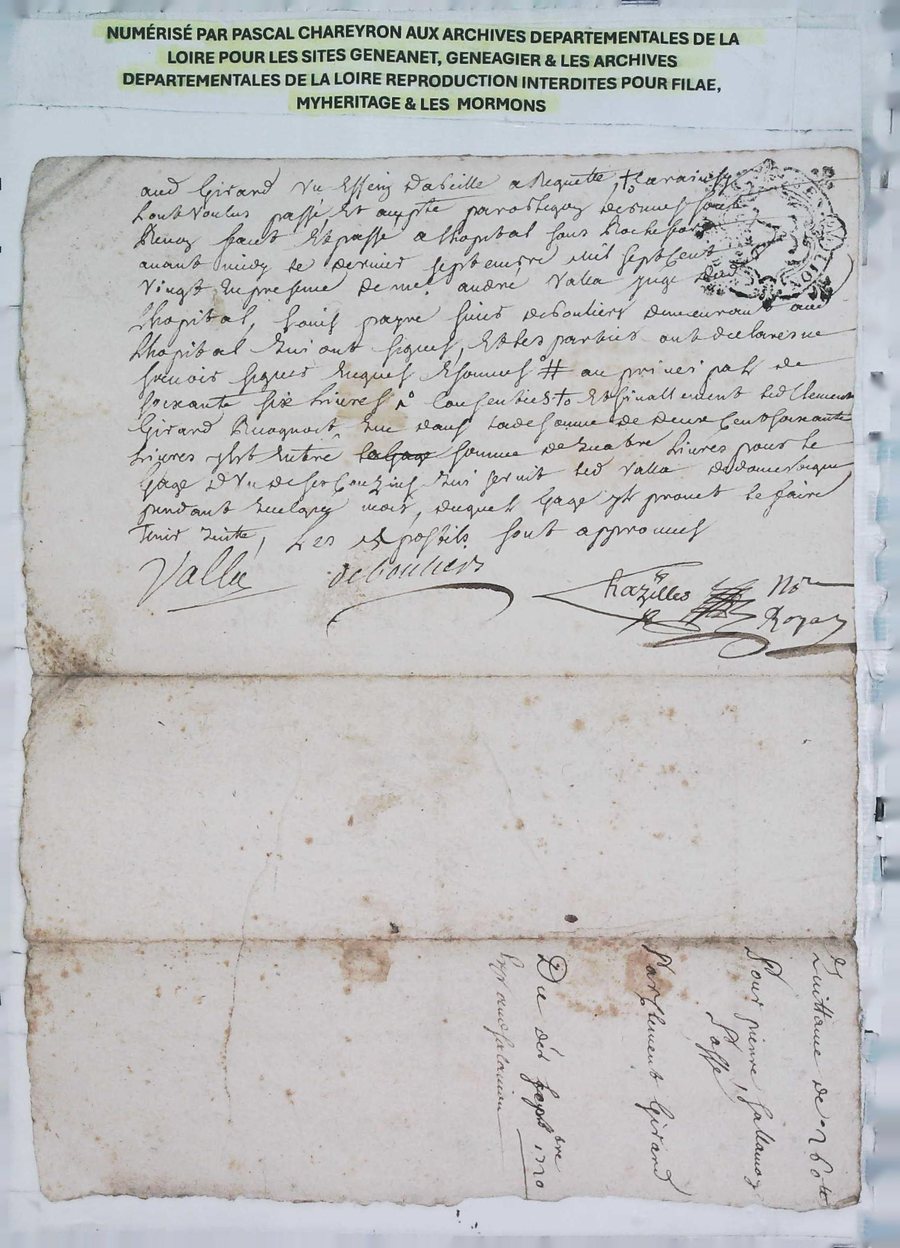 NUMÉRISÉ PAR PASCAL CHAREYRON AUX ARCHIVES DEPARTEMENTALES DE LA
LOIRE POUR LES SITES GENEANET, GENEAGIER & LES ARCHIVES
DEPARTEMENTALES DE LA LOIRE REPRODUCTION INTERDITES POUR FILAE,
MYHERITAGE & LES MORMONS
aud Girard Vn Essein dabeille a Requette
tout voulus passé Et
faict Et passé a lhopital sous Rochefort
auant midy le dernier septembre mil sept Cent
Vingt En presence de me andré Valla juge dud
lhopital, Louis payre sieur deboulieu demeurant aud
lhopital qui ont signés, Et les parties ont declaré ne
scauoir signer Enquis Et sommés # au prinsipal de
soixante six liures Et finallement led Clement
Girard Recognoit que dans lad somme de deux Cent soixante
liures y Est Entré somme de quatre liures pour le
gage d Vn de ses qui seruit led Valla de domestique
pendant quelques mois, duquel gage yl promet le faire
tenir quitte, Les apostils sont approuués
Valla deboulieu
Chazelles Nore
Royal
Quittance de 260 tt
Pour pierre Lallamoz
Par Clement Girard
Du der sepbre 1720